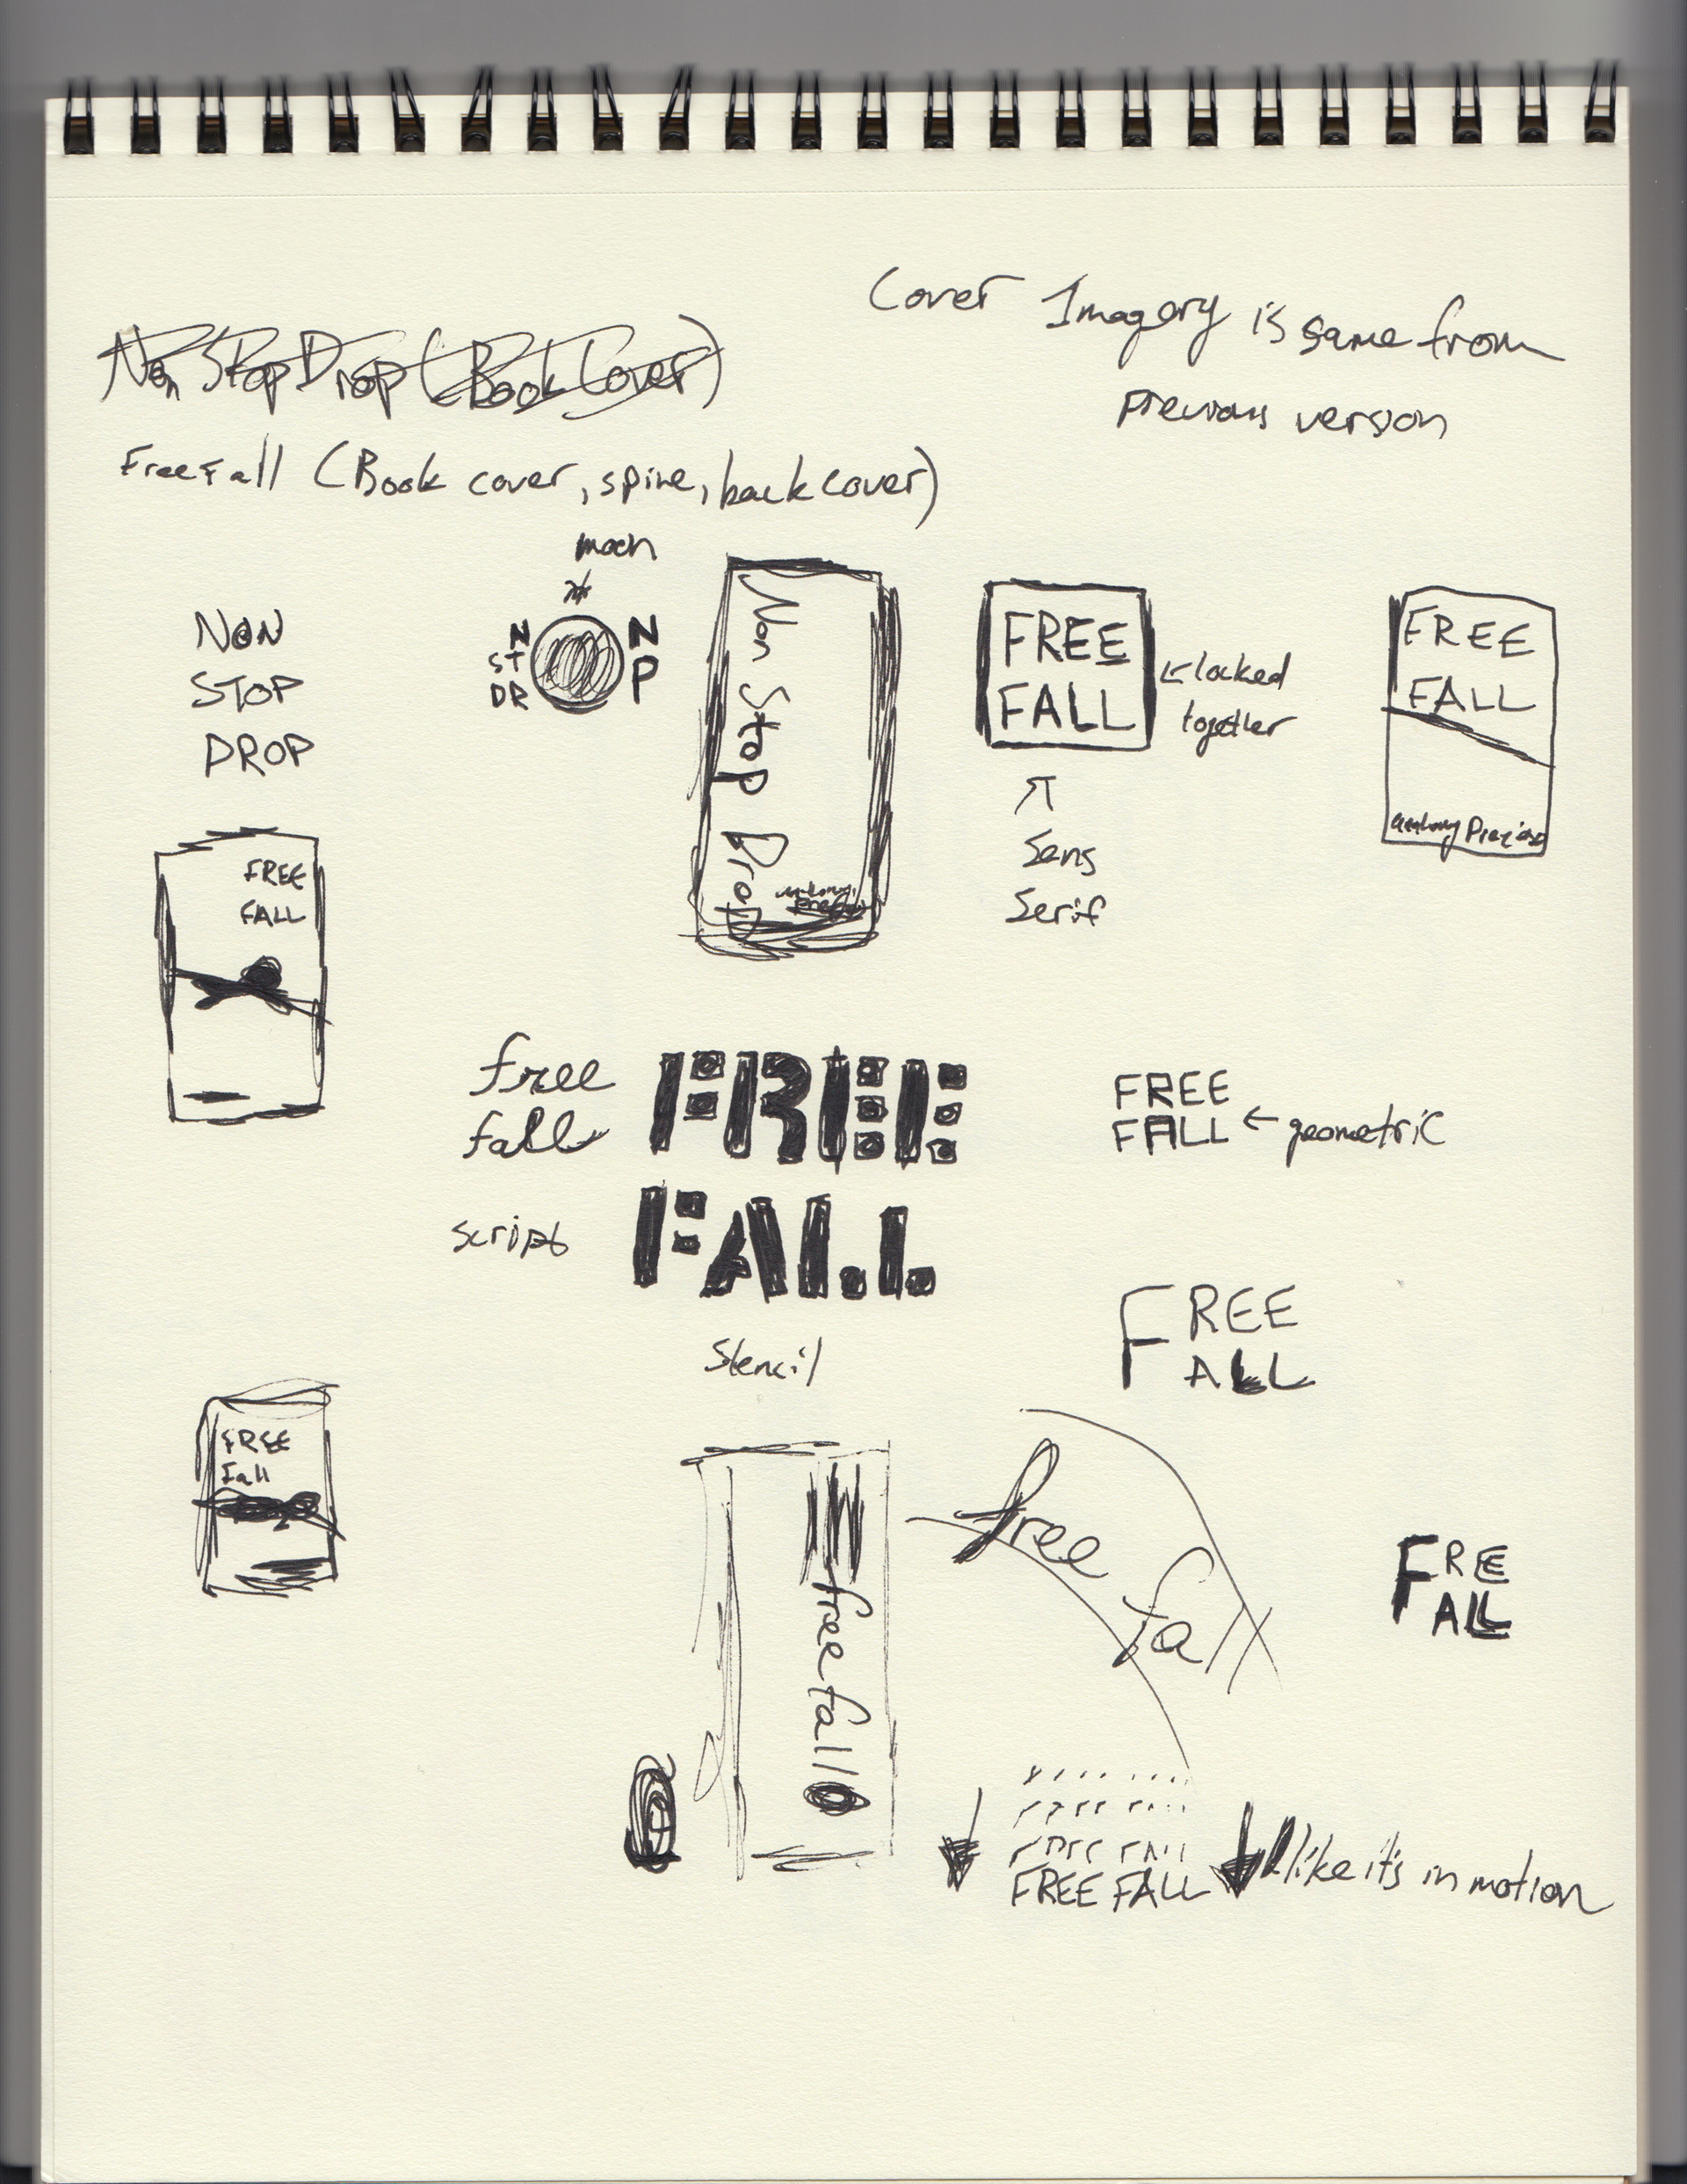 Cover Imagery is same from
previous version
Non Stop Drop (Book Cover)
Free Fall (Book cover, spine, back cover)
moon
NON
STOP
DROP
N N
ST P
DR
Non Stop Drop
FREE
FALL
locked
together
Sans
Serif
FREE
FALL
FREE
FALL
free
fall
script
FREE
FALL
Stencil
FREE
FALL
geometric
FREE
ALL
FREE
Fall
free fall
free fall
FREE
ALL
FREE FALL
like it's in motion